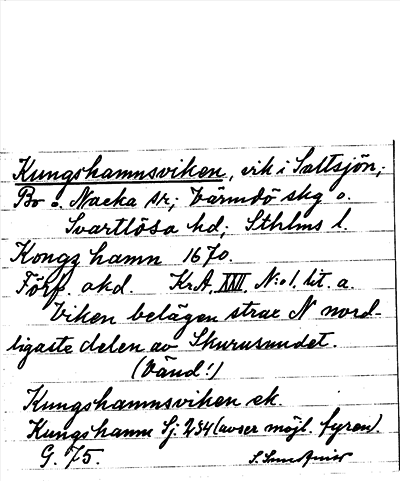 Kungshamnsviken, vik i Saltsjön;
Bo o. Nacka sr; Värmdö skg o.
Svartlösa hd; Sthlms l.
Kongz hamn 1670.
Förf. okd. Kr.A. XXII. N:o 1, lit. a.
Viken belägen strax N nord-
ligaste delen av Skurusundet.
(Vänd!)
Kungshamnsviken ek.
Kungshamn Sj. 234 (avser möjl. fyren).
G. 75.